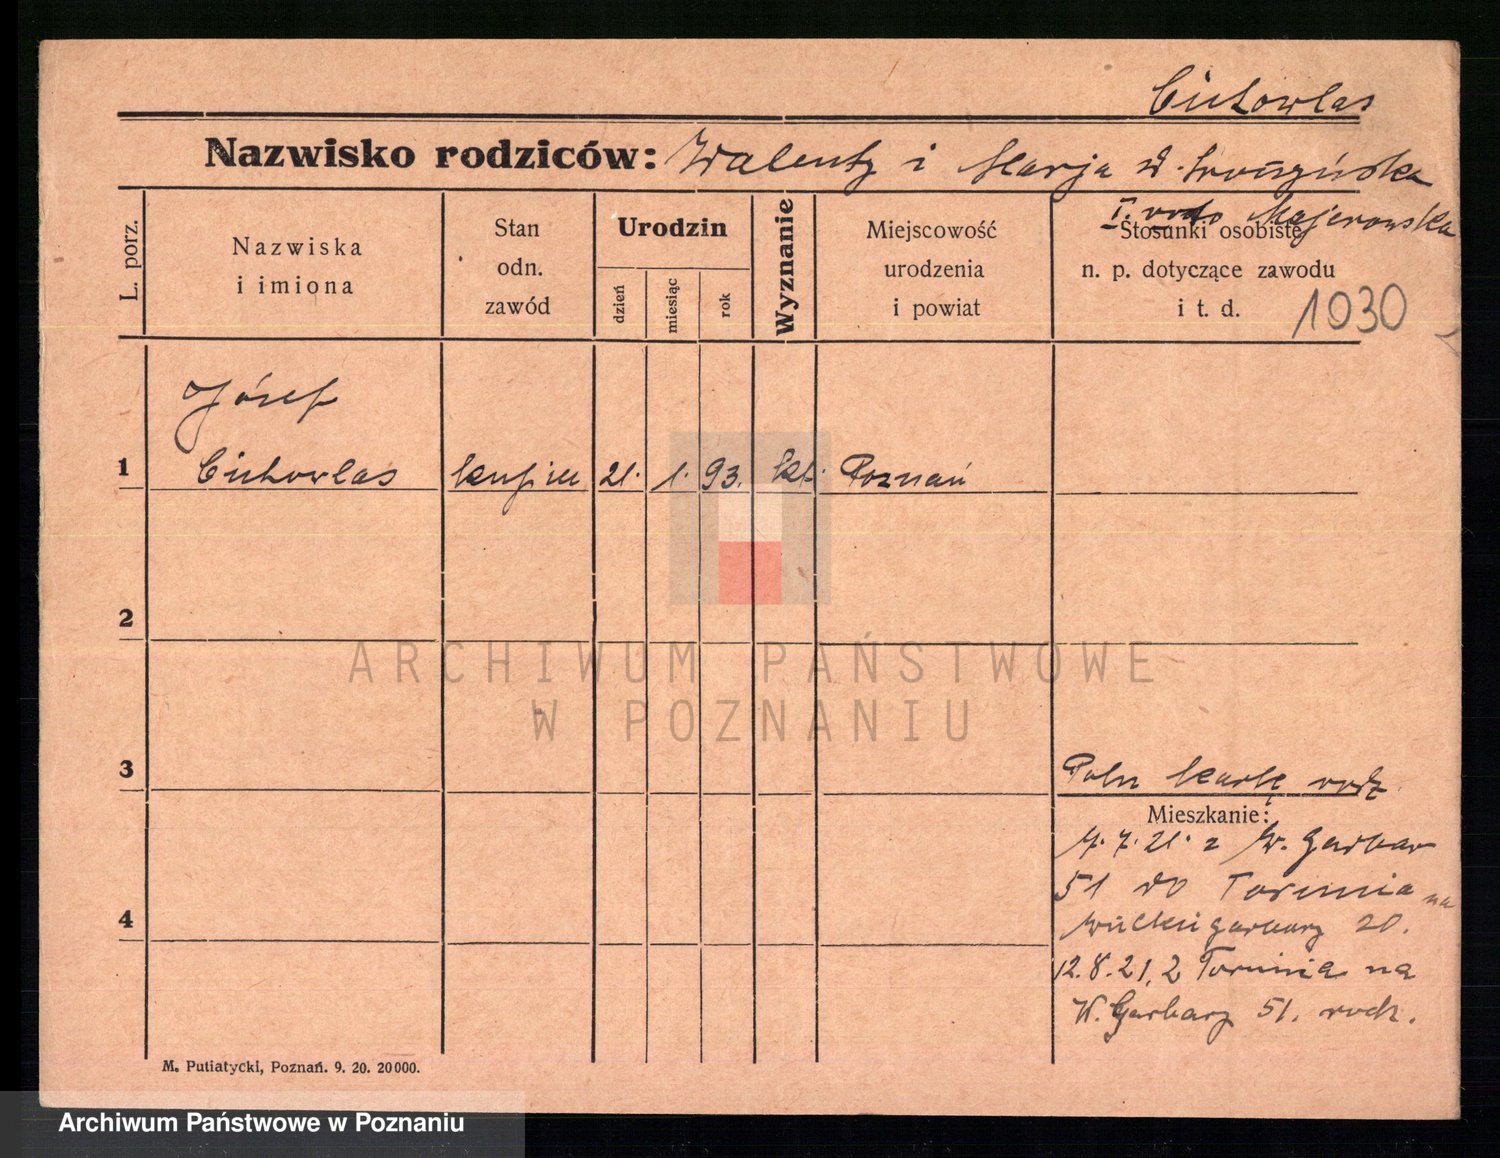 Cichowlas
Nazwisko rodziców: Walenty i Marja
Majerowska
L. porz.
Nazwiska
i imiona
Stan
odn.
zawód
Urodzin
dzień
miesiąc
rok
Wyznanie
Miejscowość
urodzenia
i powiat
Stosunki osobiste
n. p. dotyczące zawodu
i t. d.
1030
Józef
1 Cichowlas kupiec 21. 1. 93. kt. Poznań
2
ARCHIWUM PAŃSTWOWE
W POZNANIU
3
kartę rodz
Mieszkanie:
7. 21. z W. Garbar
51 do Torunia na
Wielkie garbary 20.
4
12.8.21. z Torunia na
W. Garbary 51. rodz.
M. Putiatycki, Poznań. 9. 20. 20000.
Archiwum Państwowe w Poznaniu